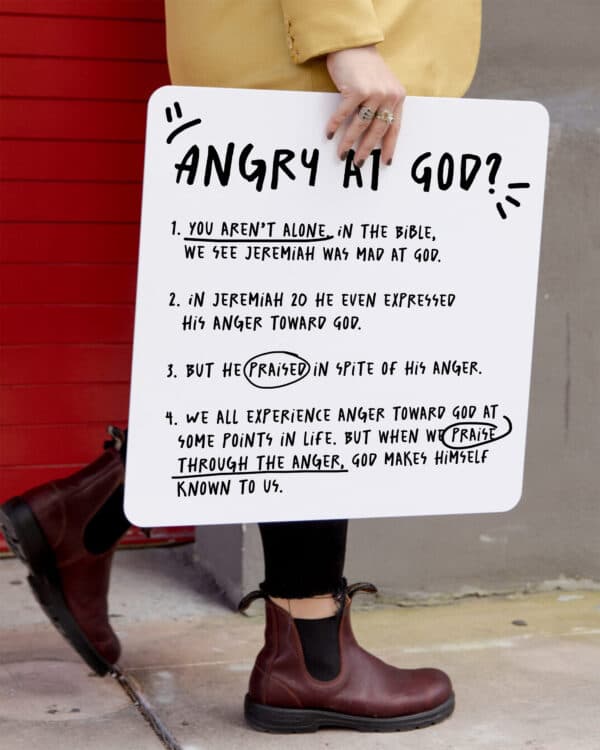 ANGRY AT GOD?
1. YOU AREN'T ALONE. IN THE BIBLE,
WE SEE JEREMIAH WAS MAD AT GOD.
2. IN JEREMIAH 20 HE EVEN EXPRESSED
HIS ANGER TOWARD GOD.
3. BUT HE PRAISED IN SPITE OF HIS ANGER.
4. WE ALL EXPERIENCE ANGER TOWARD GOD AT
SOME POINTS IN LIFE. BUT WHEN WE PRAISE
THROUGH THE ANGER, GOD MAKES HIMSELF
KNOWN TO US.